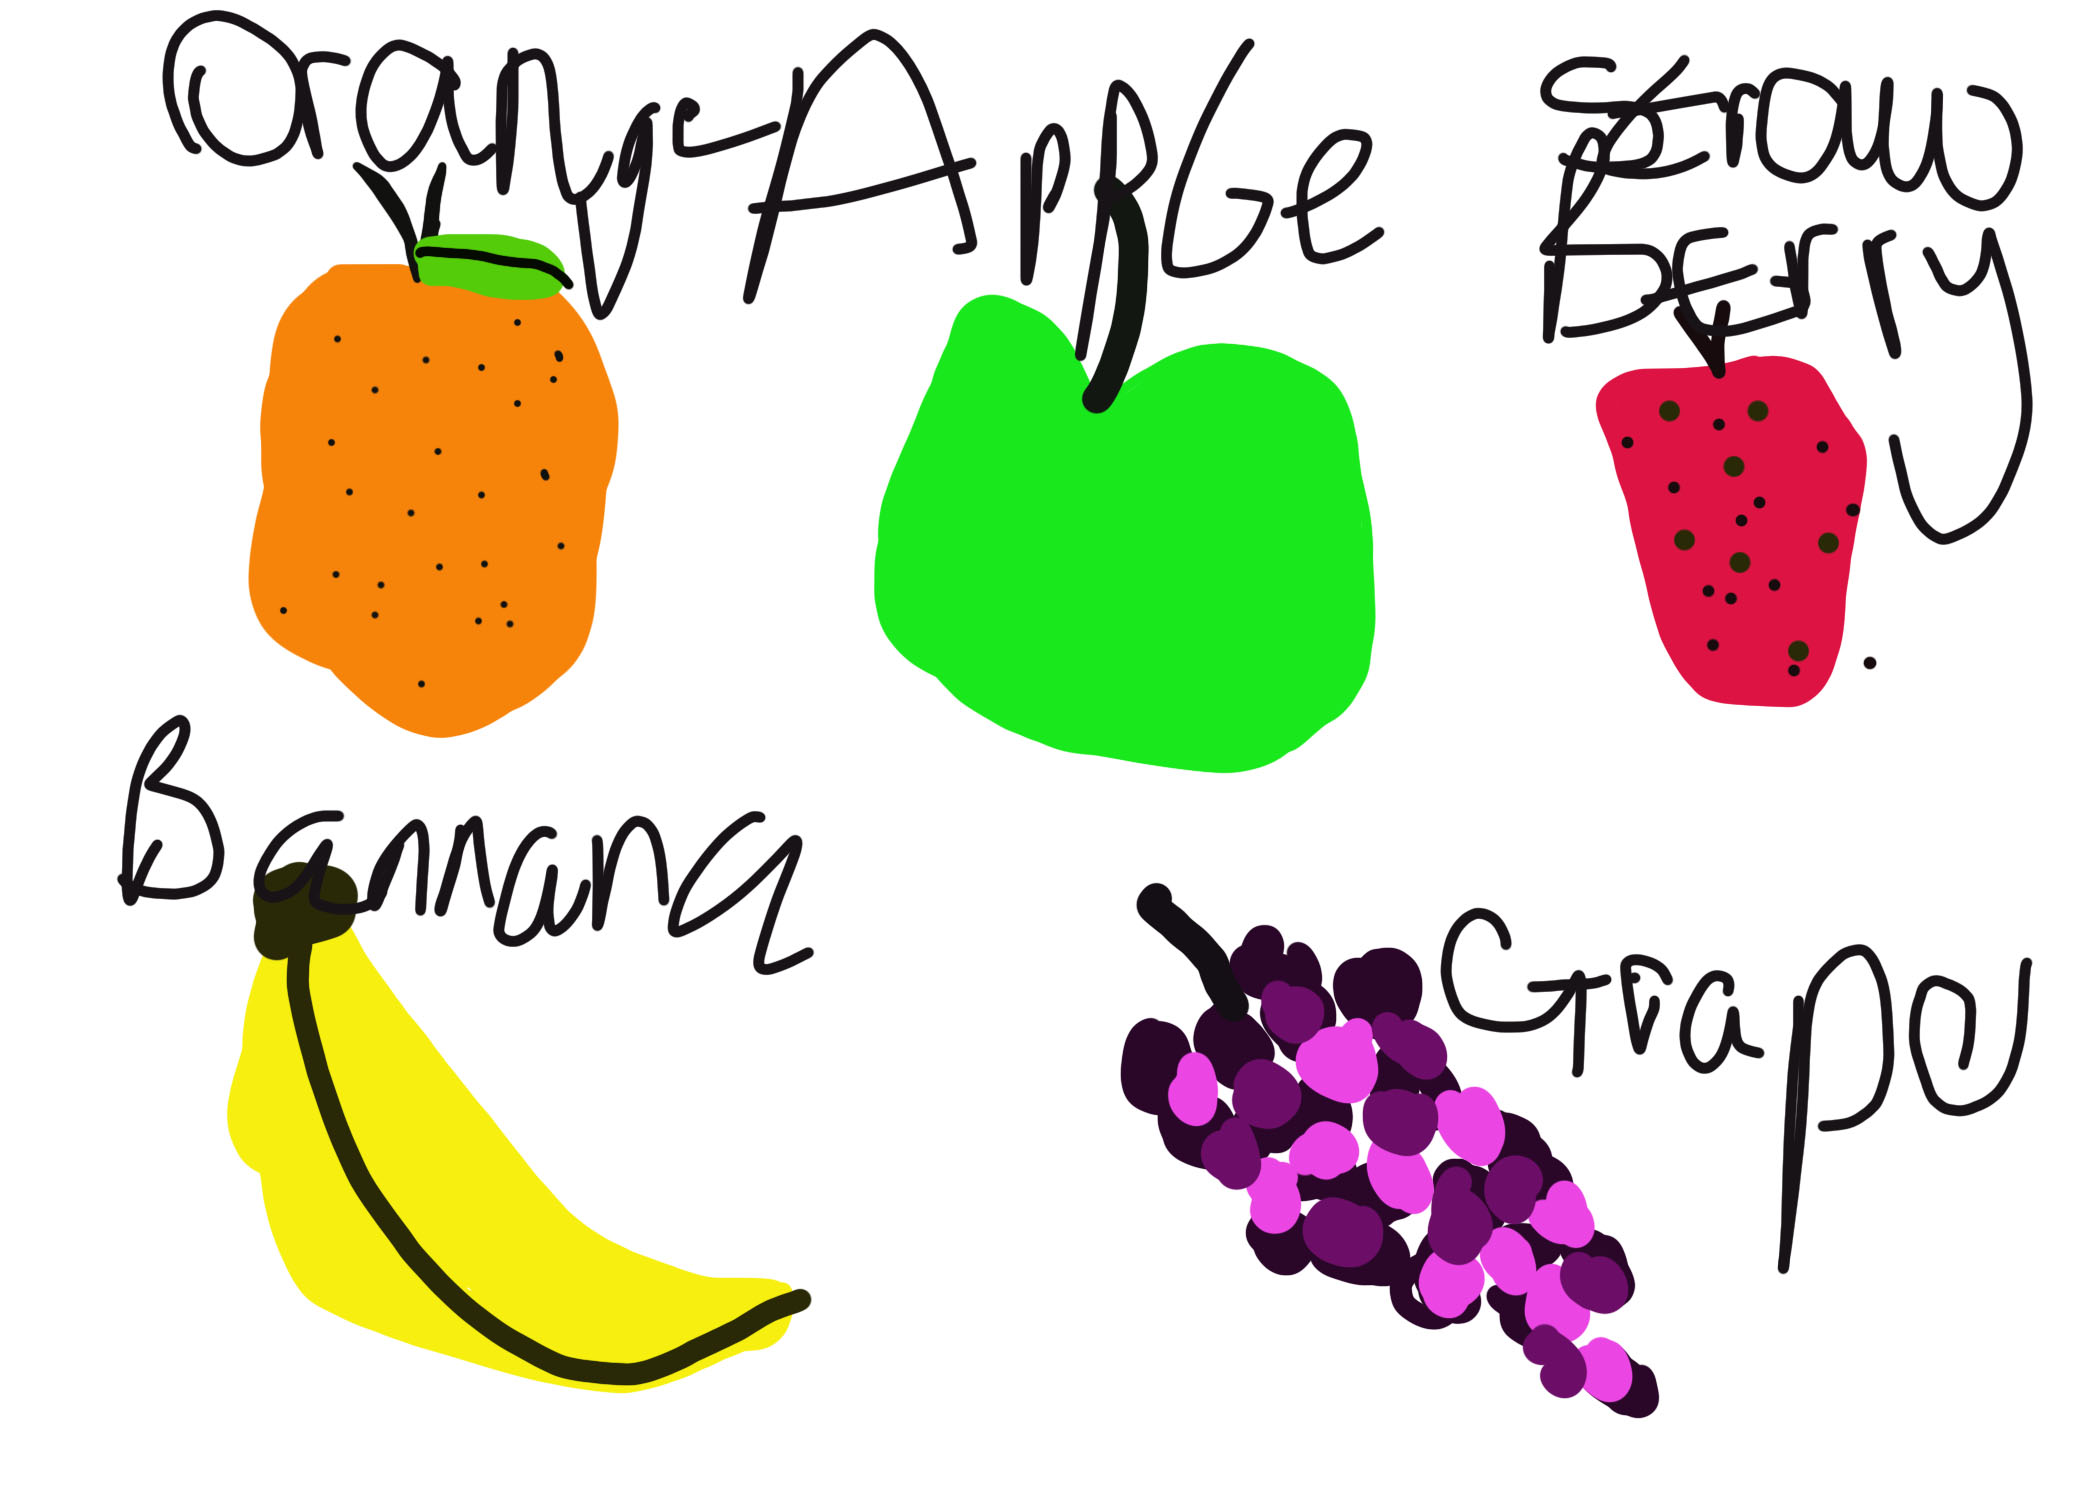 Orange Apple Straw
Berry
Banana